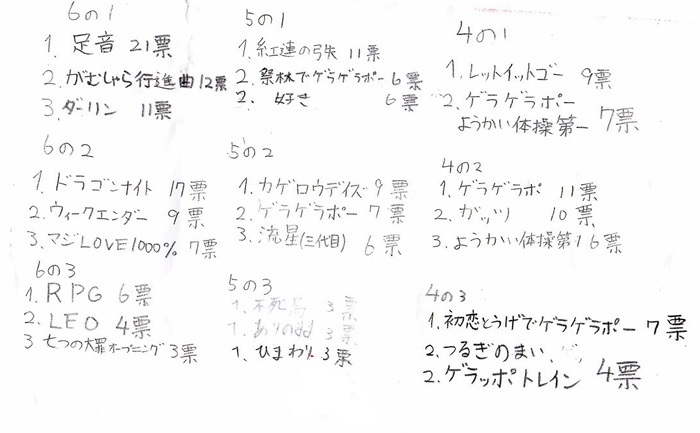 6の1
1. 足音 21票
2. がむしゃら行進曲 12票
3. ダーリン 11票
6の2
1. ドラゴンナイト 17票
2. ウィークエンダー 9票
3. マジLOVE1000% 7票
6の3
1. RPG 6票
2. LEO 4票
3 七つの大罪オープニング 3票
5の1
1. 紅蓮の弓矢 11票
2. 祭林でゲラゲラポー 6票
2. 好き 6票
5の2
1. カゲロウデイズ 9票
2. ゲラゲラポー 7票
3. 流星(三代目) 6票
5の3
1. 不死鳥 3票
1. ありのまま 3票
1. ひまわり 3票
4の1
1. レットイットゴー 9票
2. ゲラゲラポー
ようかい体操第一 7票
4の2
1. ゲラゲラポ 11票
2. ガッツ 10票
3. ようかい体操第1 6票
4の3
1. 初恋とうげでゲラゲラポー 7票
2. つるぎのまい
2. ゲラッポトレイン 4票